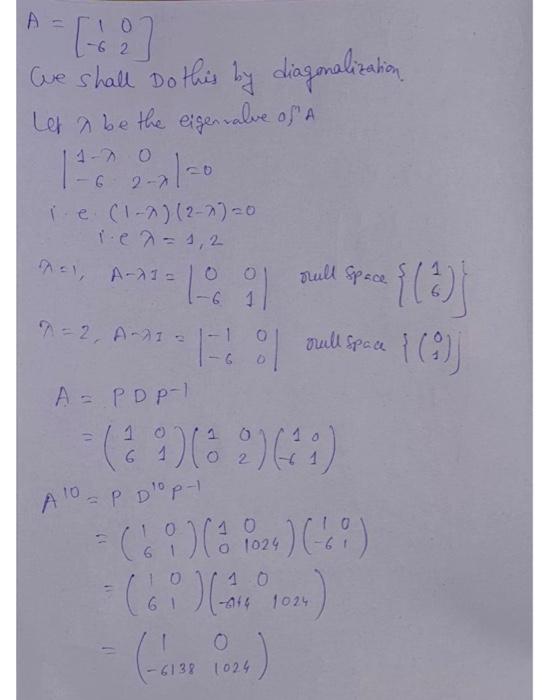 A = [1 0
-6 2]
We shall Do this by diagonalization.
Let λ be the eigenvalue of A
|1-λ 0
-6 2-λ| = 0
i.e. (1-λ)(2-λ)=0
i.e λ = 1, 2
λ=1, A-λI = |0 0
-6 1| null Space {(1
6)}
λ=2, A-λI = |-1 0
-6 0| null Space {(0
1)}
A = P D P⁻¹
= (1 0
6 1) (1 0
0 2) (1 0
-6 1)
A¹⁰ = P D¹⁰ P⁻¹
= (1 0
6 1) (1 0
0 1024) (1 0
-6 1)
= (1 0
6 1) (1 0
1024)
= (1 0
-6138 1024)